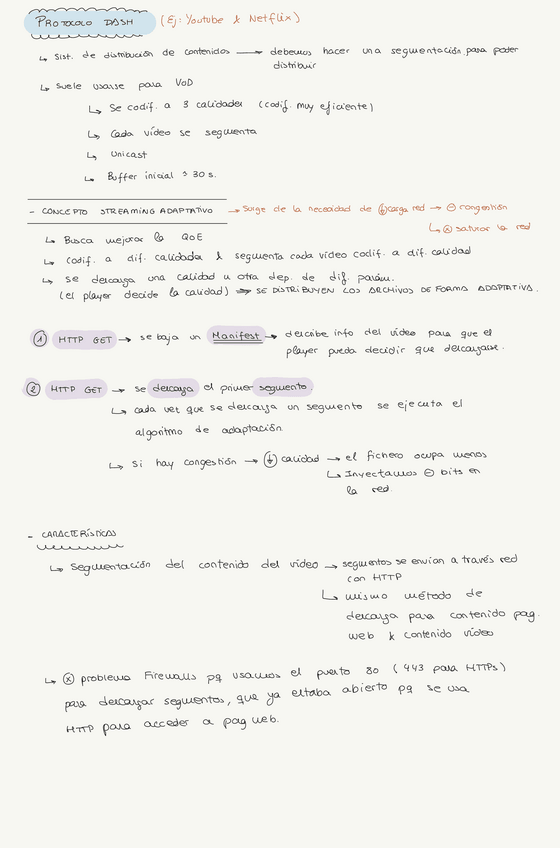 PROTOCOLO DASH (Ej: Youtube & Netflix)
↳ Sist. de distribución de contenidos → debemos hacer una segmentación para poder
distribuir
↳ Suele usarse para VoD
↳ Se codif. a 3 calidades (codif. muy eficiente)
↳ Cada vídeo se segmenta
↳ Unicast
↳ Buffer inicial > 30 s.
- CONCEPTO STREAMING ADAPTATIVO → Surge de la necesidad de ↓ carga red → ⊖ congestión
↳ ⊗ saturar la red
↳ Busca mejorar la QoE
↳ Codif. a dif. calidades & segmenta cada vídeo codif. a dif. calidad
↳ Se descarga una calidad u otra dep. de dif. parám.
(el player decide la calidad) ⇒ SE DISTRIBUYEN LOS ARCHIVOS DE FORMA ADAPTATIVA.
① HTTP GET → se baja un Manifest → describe info del vídeo para que el
player pueda decidir que descargarse.
② HTTP GET → se descarga el primer segmento.
↳ cada vez que se descarga un segmento se ejecuta el
algoritmo de adaptación.
↳ Si hay congestión → ↓ calidad → el fichero ocupa menos
↳ Inyectamos ⊖ bits en
la red.
- CARACTERÍSTICAS
↳ Segmentación del contenido del vídeo → segmentos se envían a través red
con HTTP
↳ mismo método de
descarga para contenido pag.
web & contenido vídeo
↳ ⊗ problema Firewalls pq usamos el puerto 80 (443 para HTTPs)
para descargar segmentos, que ya estaba abierto pq se usa
HTTP para acceder a pag web.